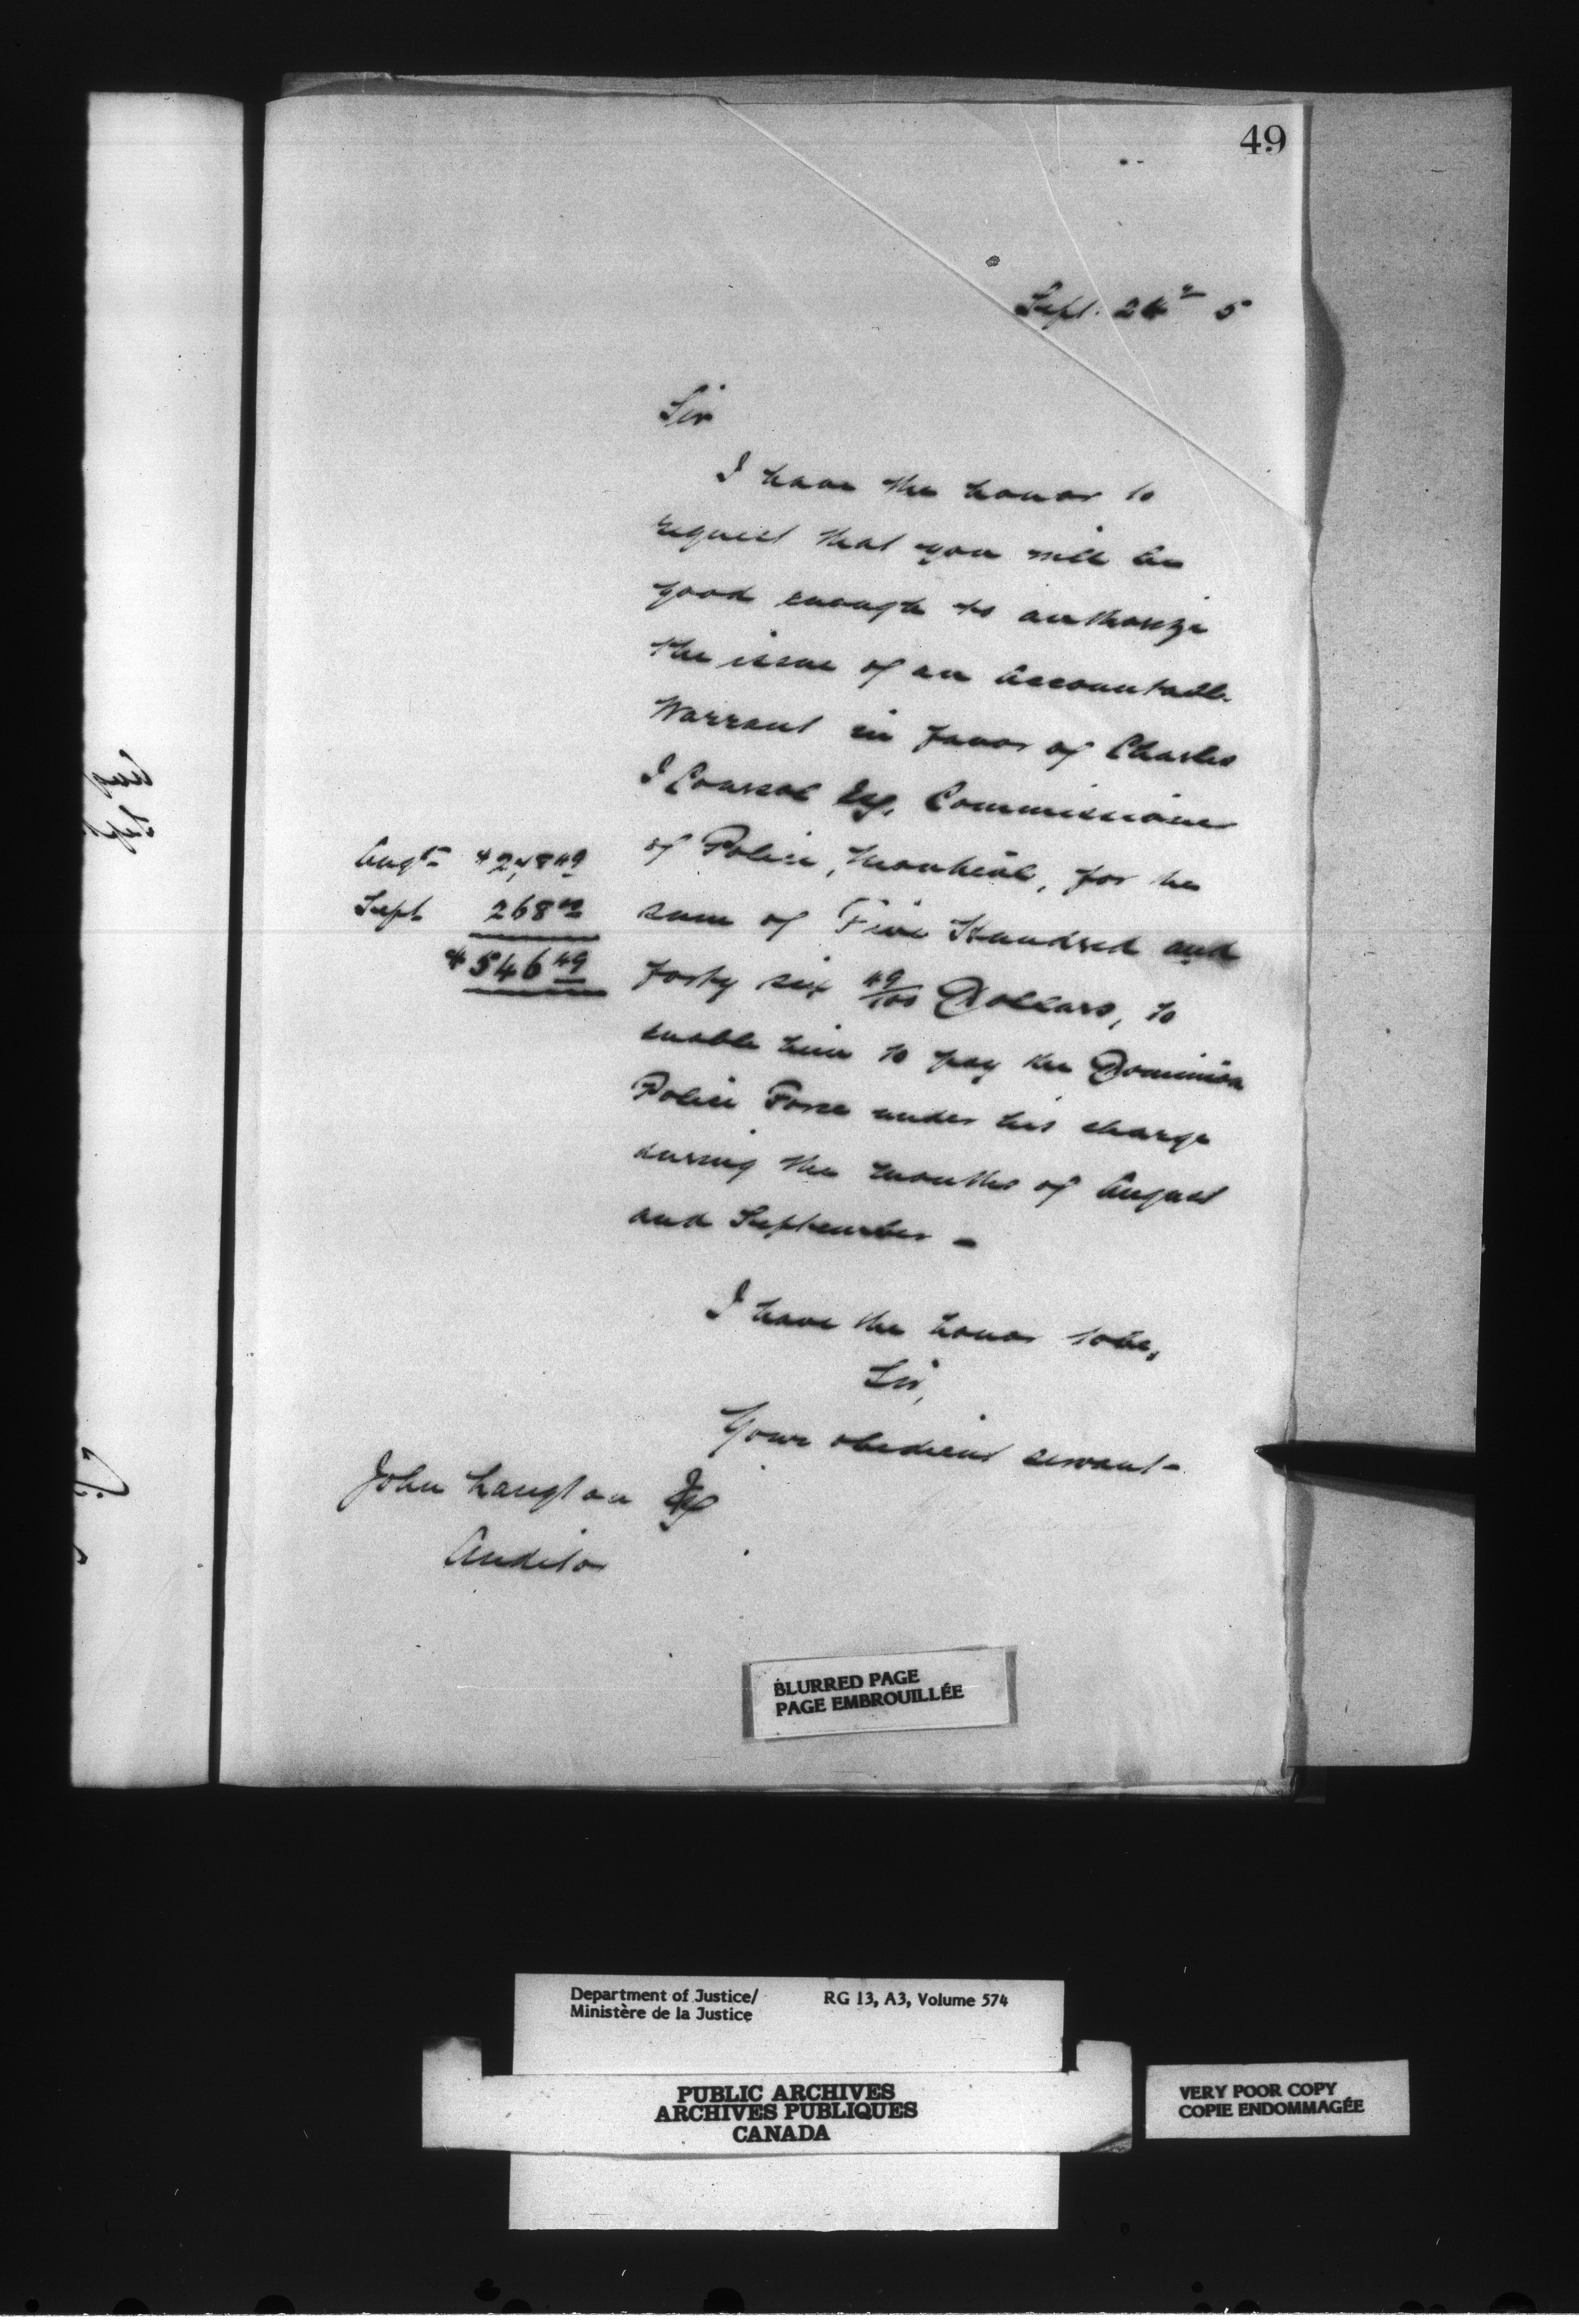 49
Sept. 24 5
Sir
I have the honor to
request that you will be
good enough to authorize
the issue of an Accountable
Warrant in favor of Charles
J Coursol Esq, Commissioner
of Police, Montreal, for the
sum of Five Hundred and
forty six 49/100 Dollars, to
enable him to pay the Dominion
Police Force under his charge
during the months of August
and September -
Augt $ 278 49
Sept 268 00
$ 546 49
I have the honor to be,
Sir,
Your obedient servant -
John Langton Esq
Auditor
BLURRED PAGE
PAGE EMBROUILLÉE
Department of Justice/ RG 13, A3, Volume 574
Ministère de la Justice
PUBLIC ARCHIVES
ARCHIVES PUBLIQUES
CANADA
VERY POOR COPY
COPIE ENDOMMAGÉE